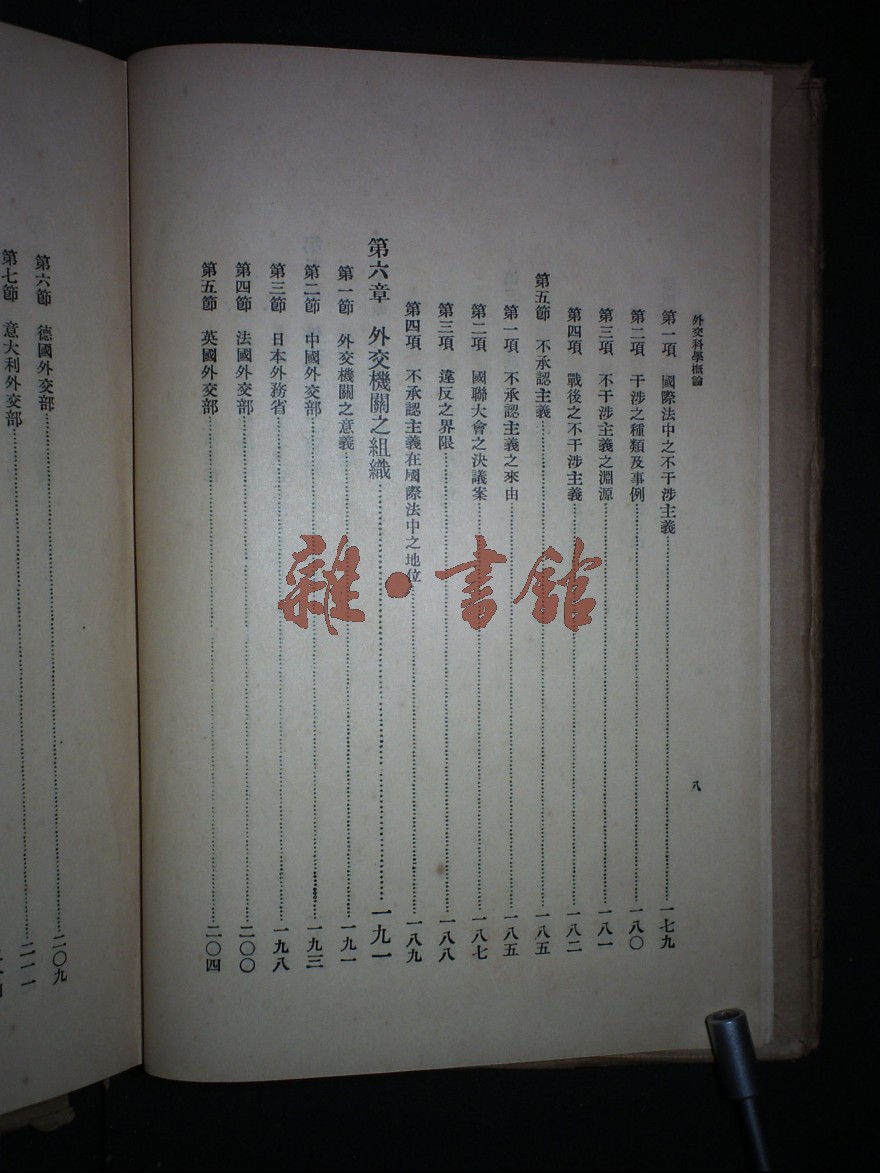 外交科學概論
八
第一項 國際法中之不干涉主義……一七九
第二項 干涉之種類及事例……一八〇
第三項 不干涉主義之淵源……一八一
第四項 戰後之不干涉主義……一八二
第五節 不承認主義……一八五
第一項 不承認主義之來由……一八五
第二項 國聯大會之決議案……一八七
第三項 違反之界限……一八八
第四項 不承認主義在國際法中之地位……一八九
第六章 外交機關之組織……一九一
第一節 外交機關之意義……一九一
第二節 中國外交部……一九三
第三節 日本外務省……一九八
第四節 法國外交部……二〇〇
第五節 英國外交部……二〇四
第六節 德國外交部……二〇九
第七節 意大利外交部……二一一
雜·書館